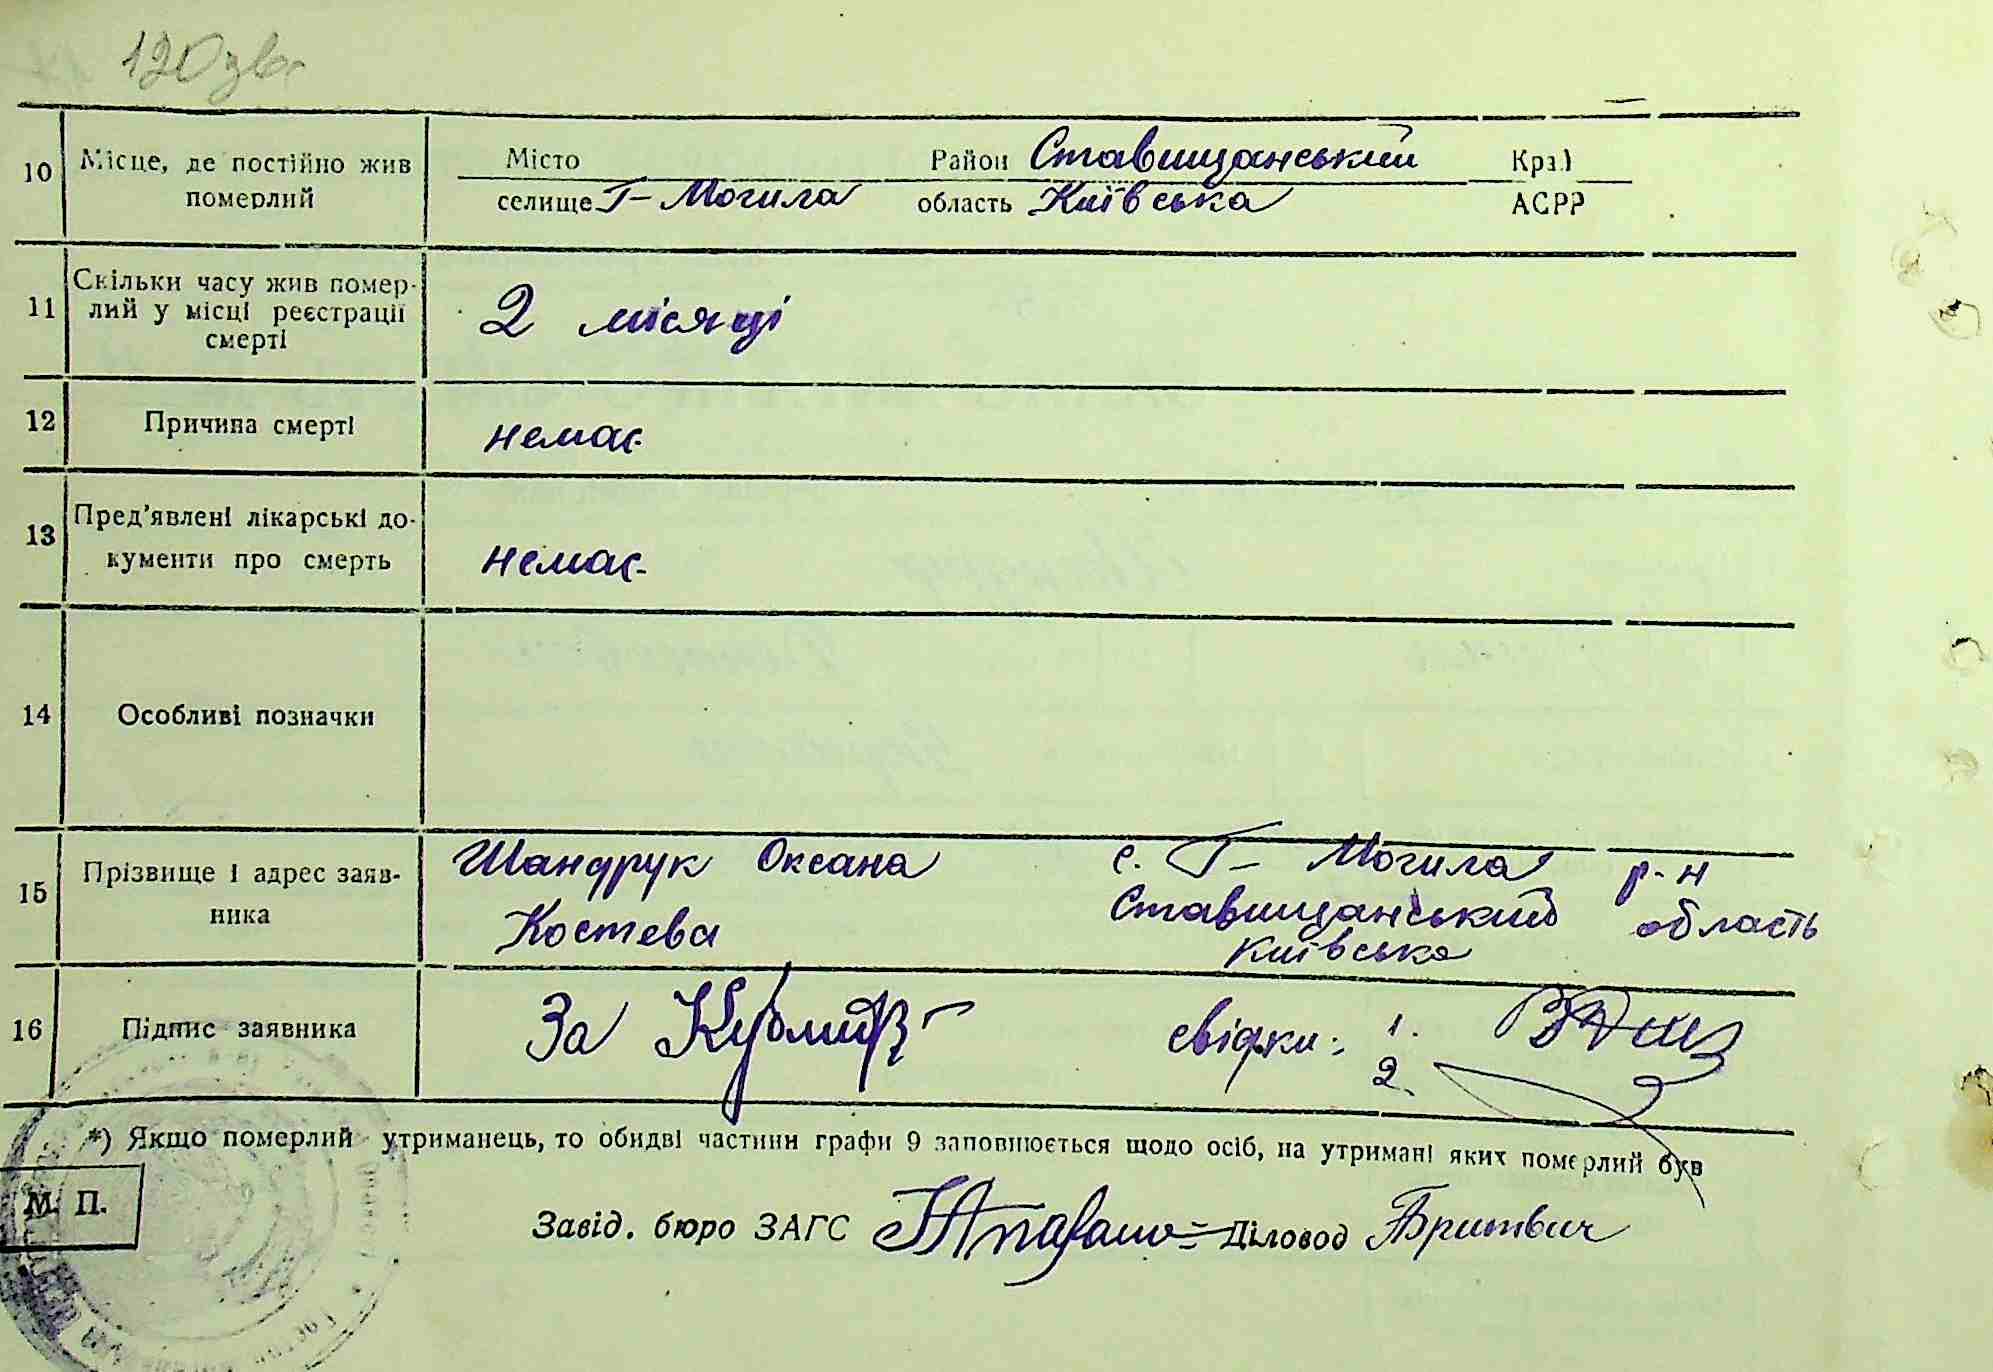 120 зв
10 Місце, де постійно жив померлий
Місто Район Ставищанський Краї
селище Г-Могила область Київська АСРР
11 Скільки часу жив помер-
лий у місці реєстрації
смерті
2 місяці
12 Причина смерті немає
13 Пред'явлені лікарські до-
кументи про смерть
немає
14 Особливі позначки
15 Прізвище і адрес заяв-
ника
Шандрук Оксана с. Г-Могила р-н
Костева Ставищанський область
Київська
16 Підпис заявника За свідки: 1.
2.
*) Якщо померлий утриманець, то обидві частини графи 9 заповнюється щодо осіб, на утримані яких померлий був
М. П.
Завід. бюро ЗАГС Діловод Бритвич